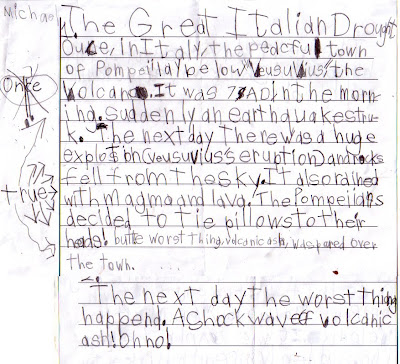 Michael
The Great Italian Drought
Once, in Italy the peaceful town
of Pompeii lay below Veusuvius, the
volcano. It was 79 AD in the morn
ing. suddenly an earthquake stru
k. The next day There was a huge
explosion (veusuviuss eruption) and rocks
fell from the sky. It also rained
with Magma and lava. The Pompeiians
decided to tie pillows to their
heads! but the worst thing, volcanic ash, was pored over
the town. ...
The next day the worst thing
happend. A Shock wave of volcanic
ash! Oh no!
Once
true